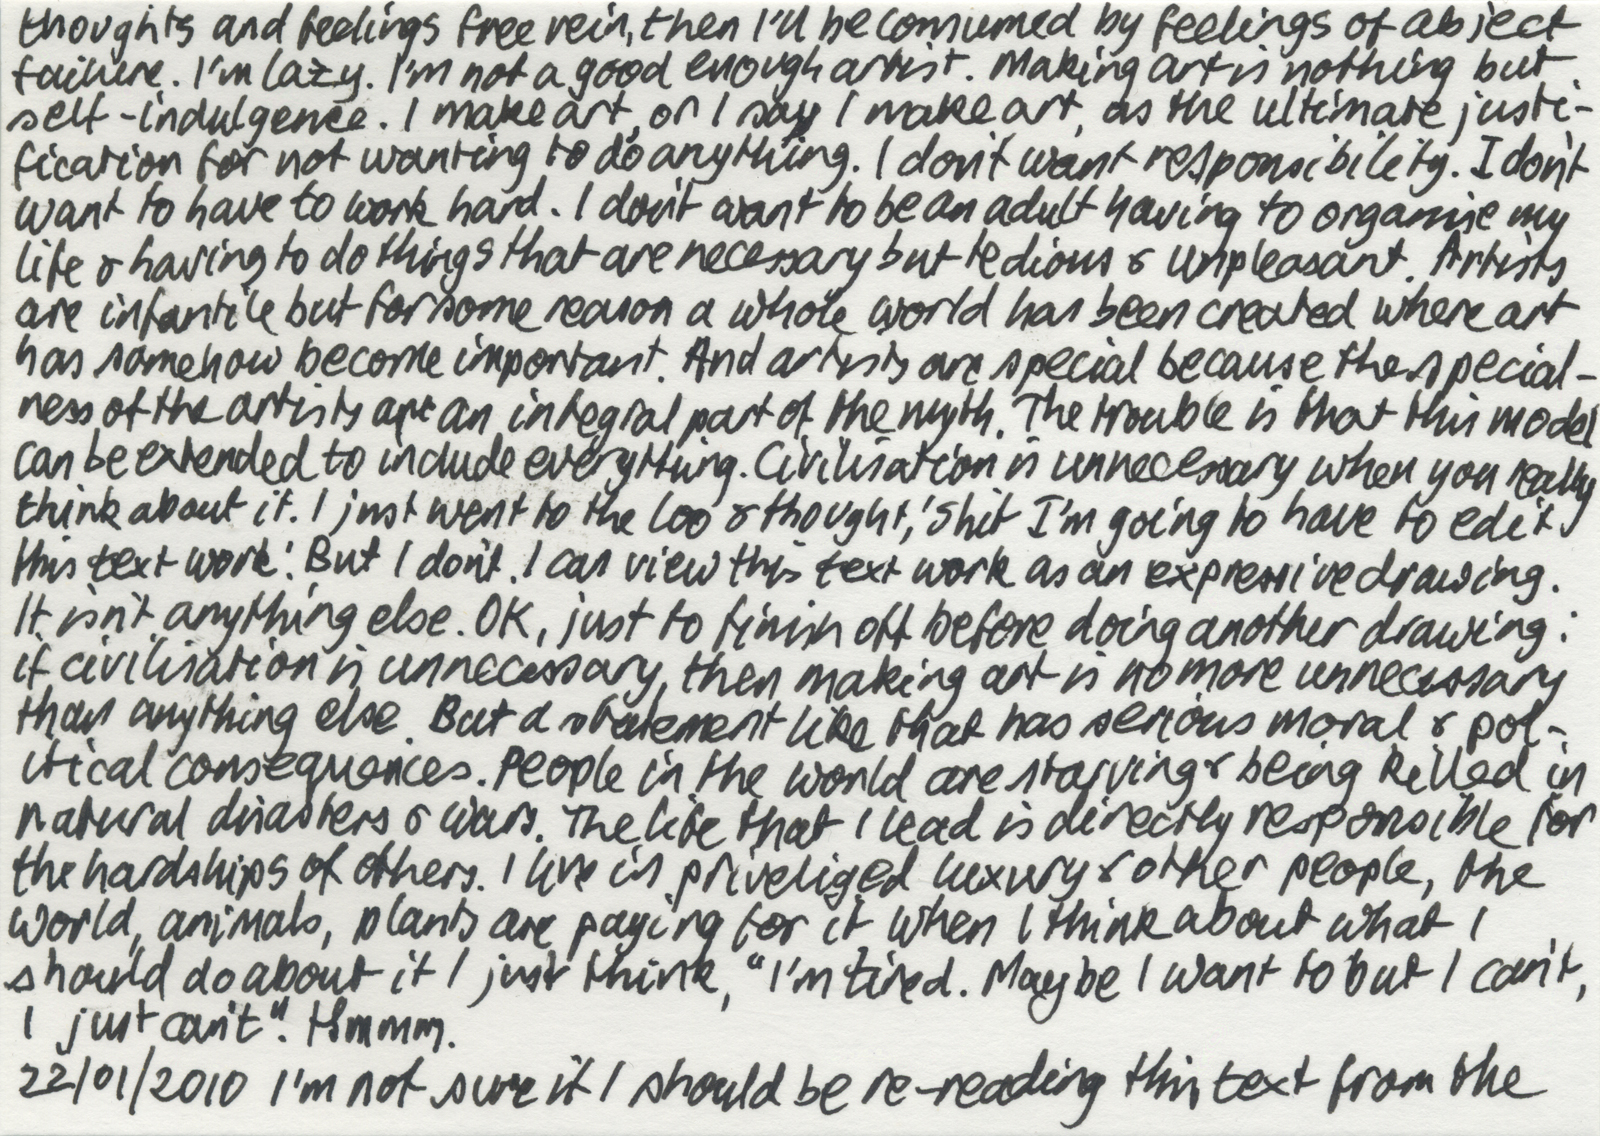 thoughts and feelings free rein, then I'll be consumed by feelings of abject
failure. I'm lazy. I'm not a good enough artist. Making art is nothing but
self-indulgence. I make art, or I say I make art, as the ultimate justi-
fication for not wanting to do anything. I don't want responsibility. I don't
want to have to work hard. I don't want to be an adult having to organise my
life & having to do things that are necessary but tedious & unpleasant. Artists
are infantile but for some reason a whole world has been created where art
has somehow become important. And artists are special because the special-
ness of the artist is an integral part of the myth. The trouble is that this model
can be extended to include everything. Civilisation is unnecessary when you really
think about it. I just went to the loo & thought, 'Shit I'm going to have to edit
this text work'. But I don't. I can view this text work as an expressive drawing.
It isn't anything else. OK, just to finish off before doing another drawing:
if civilisation is unnecessary, then making art is no more unnecessary
than anything else. But a statement like that has serious moral & pol-
itical consequences. People in the world are starving & being killed in
natural disasters & wars. The life that I lead is directly responsible for
the hardships of others. I live in priveliged luxury & other people, the
world, animals, plants are paying for it when I think about what I
should do about it I just think, "I'm tired. Maybe I want to but I can't,
I just can't". Hmmm.
22/01/2010 I'm not sure if I should be re-reading this text from the